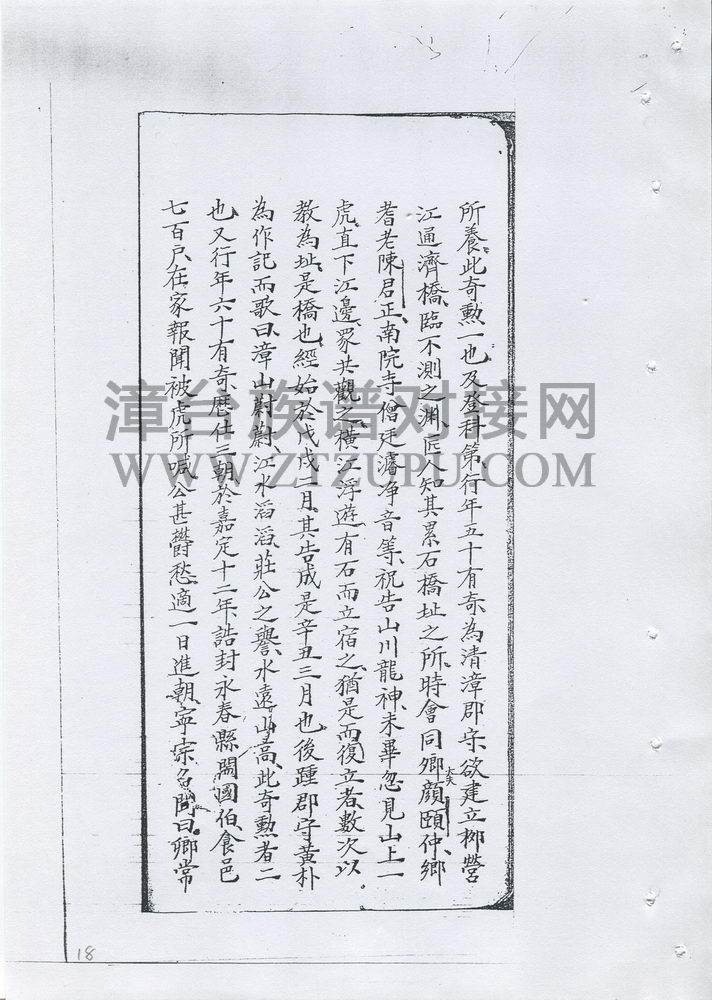 所養此奇勳一也及登科第行年五十有奇為清漳郡守欲建立柳營
江通濟橋臨不測之淵匠人知其累石橋址之所時會同鄉顏頤仲鄉
大夫
耆老陳君正南院寺僧廷濬净音等祝告山川龍神未畢忽見山上一
虎直下江邊眾共觀之橫江浮遊有石而立宿之猶是而復立者數次以
教為址是橋也經始於戊戌二月其告成是辛丑三月也後踵郡守黃朴
為作記而歌曰漳山蔚蔚江水滔滔莊公之譽水遠山高此奇勳者二
也又行年六十有奇歷仕三朝於嘉定十二年誥封永春縣開國伯食邑
七百戶在家報聞被虎所喊公甚欝愁適一日進朝寧宗名問曰卿常
漳台族谱对接网
WWW.ZTZUPU.COM
18